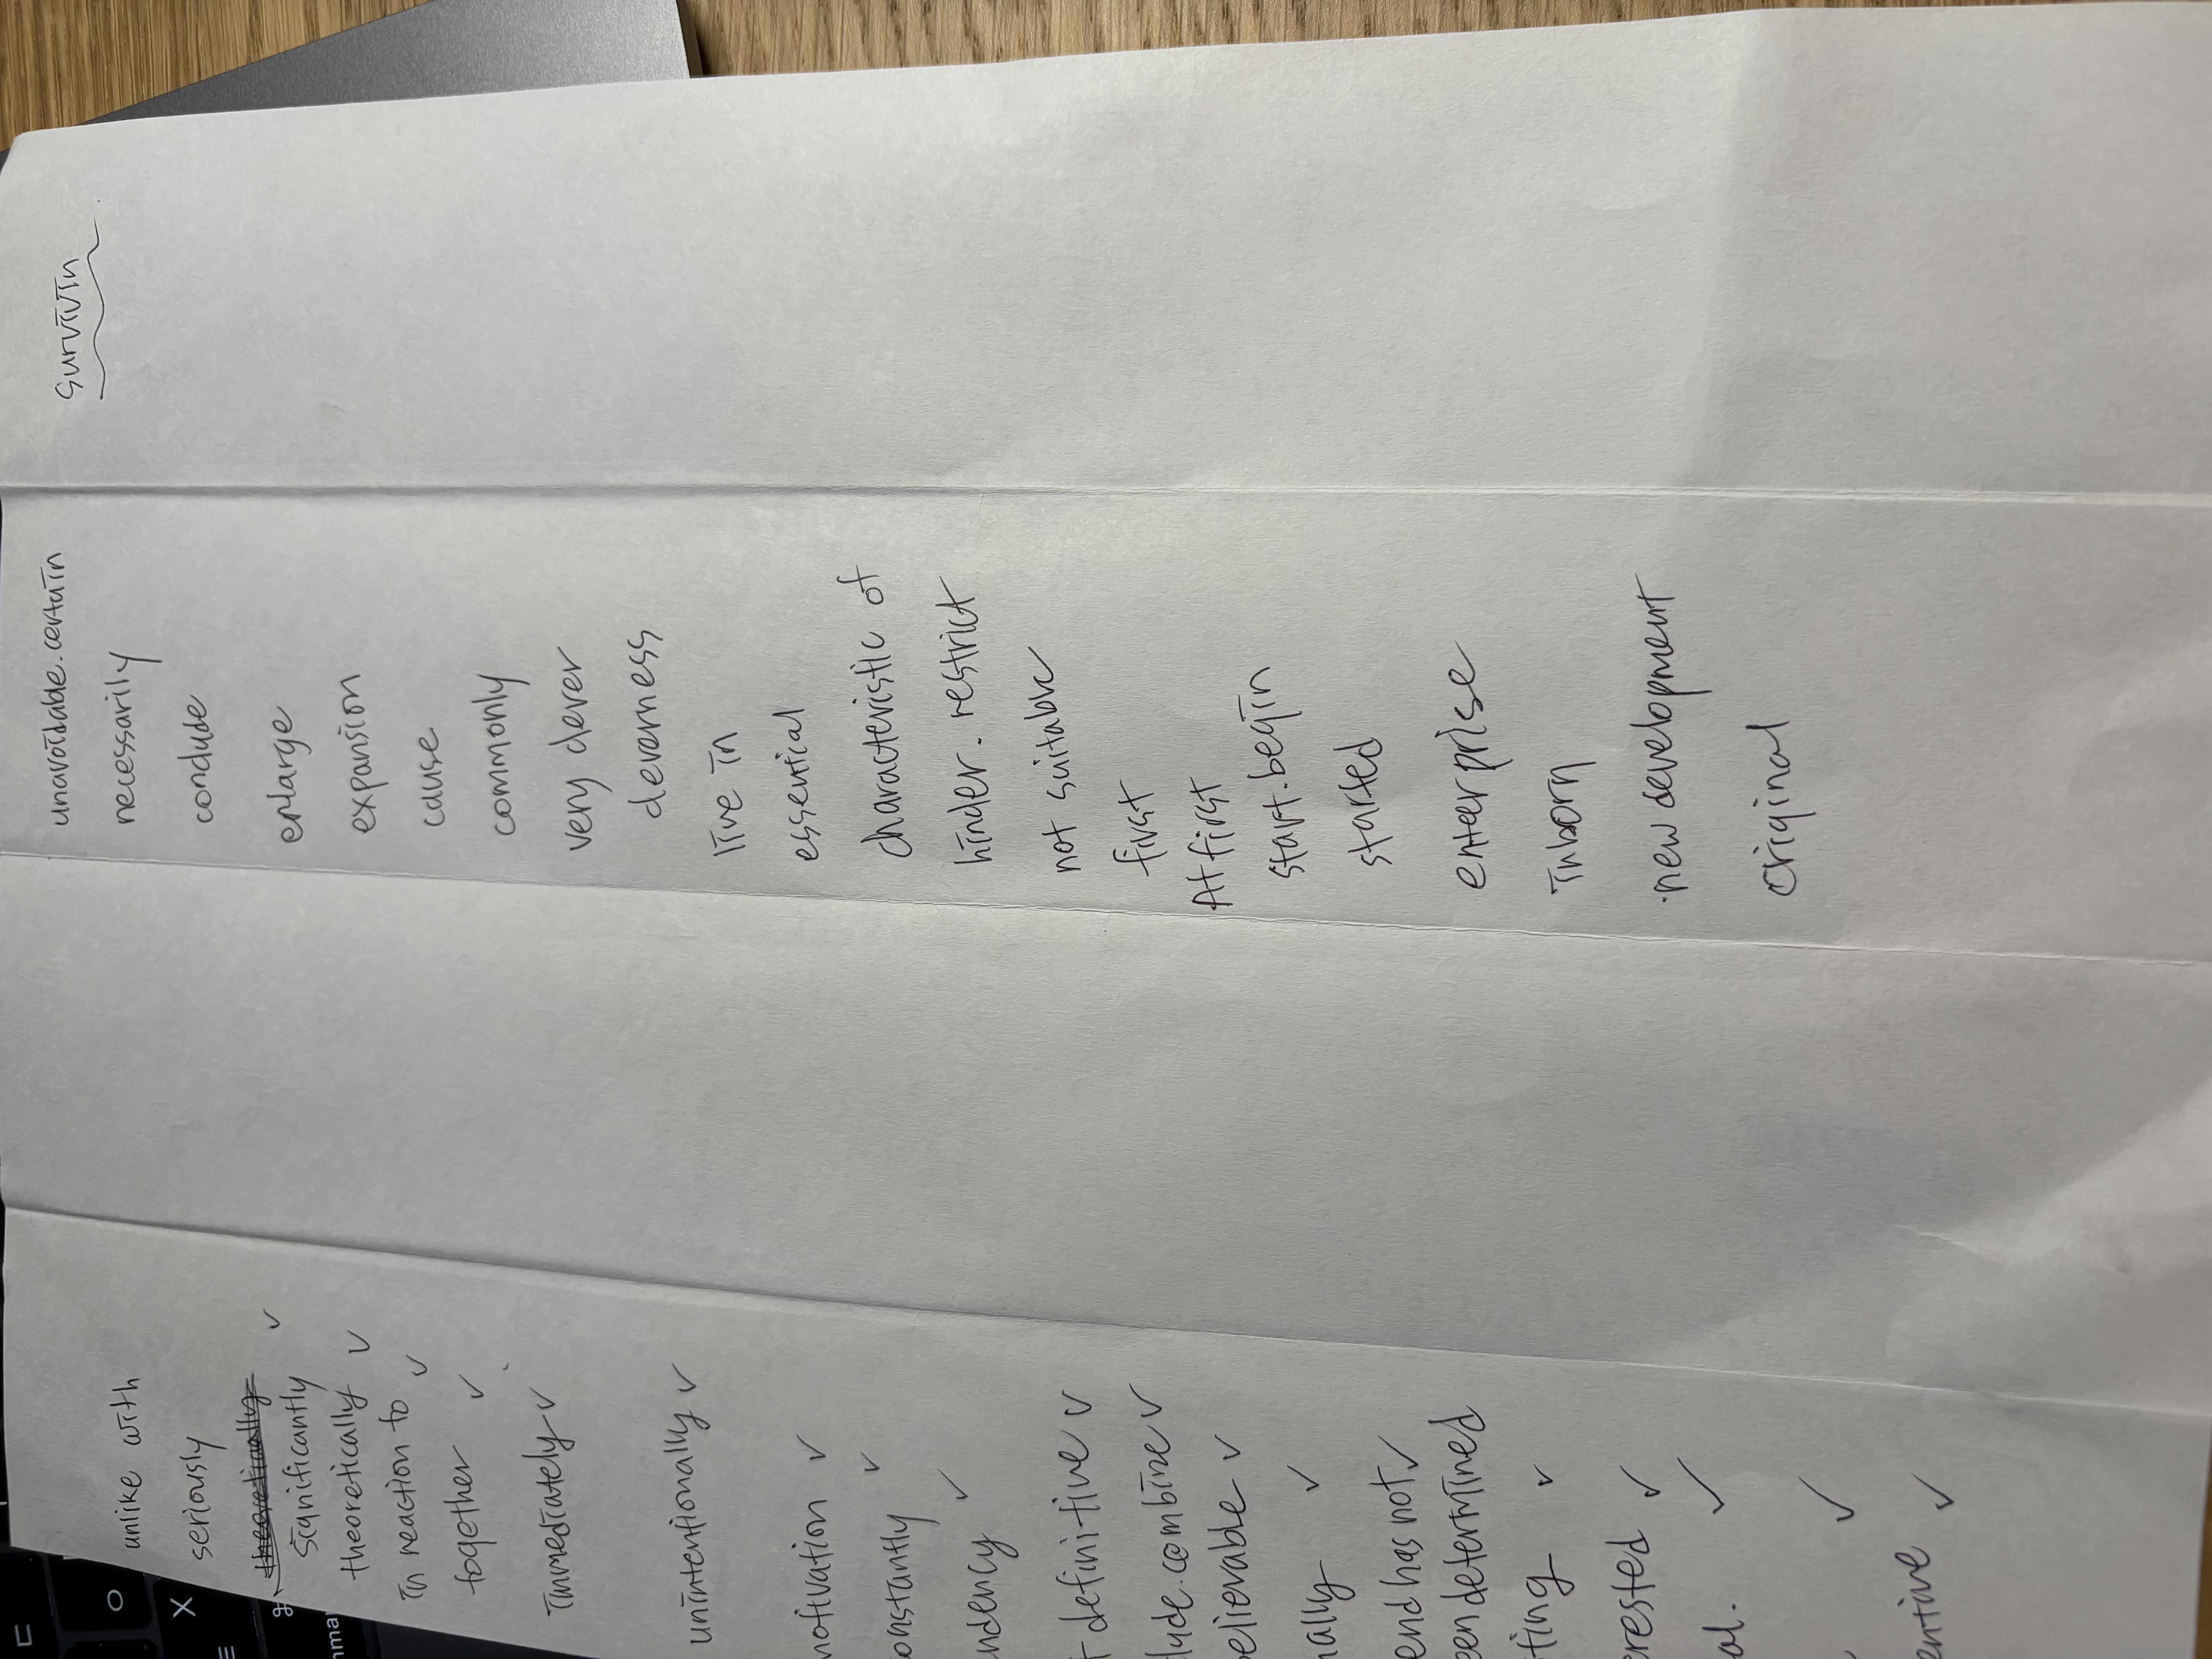 unlike with
seriously
significantly ✓
theoretically ✓
in reaction to ✓
together ✓
immediately ✓
unintentionally ✓
notivation ✓
onstantly ✓
ndency ✓
t definitive ✓
lude.combine ✓
elievable ✓
nally ✓
end has not ✓
een determined
ting ✓
rested ✓
al. ✓
✓
entive ✓
unavoidable.certain
necessarily
conclude
enlarge
expansion
cause
commonly
very clever
cleverness
live in
essential
characteristic of
hinder. restrict
not suitable
first
At first
start.begin
started
enterprise
inborn
.new development
original
survivin
O
X